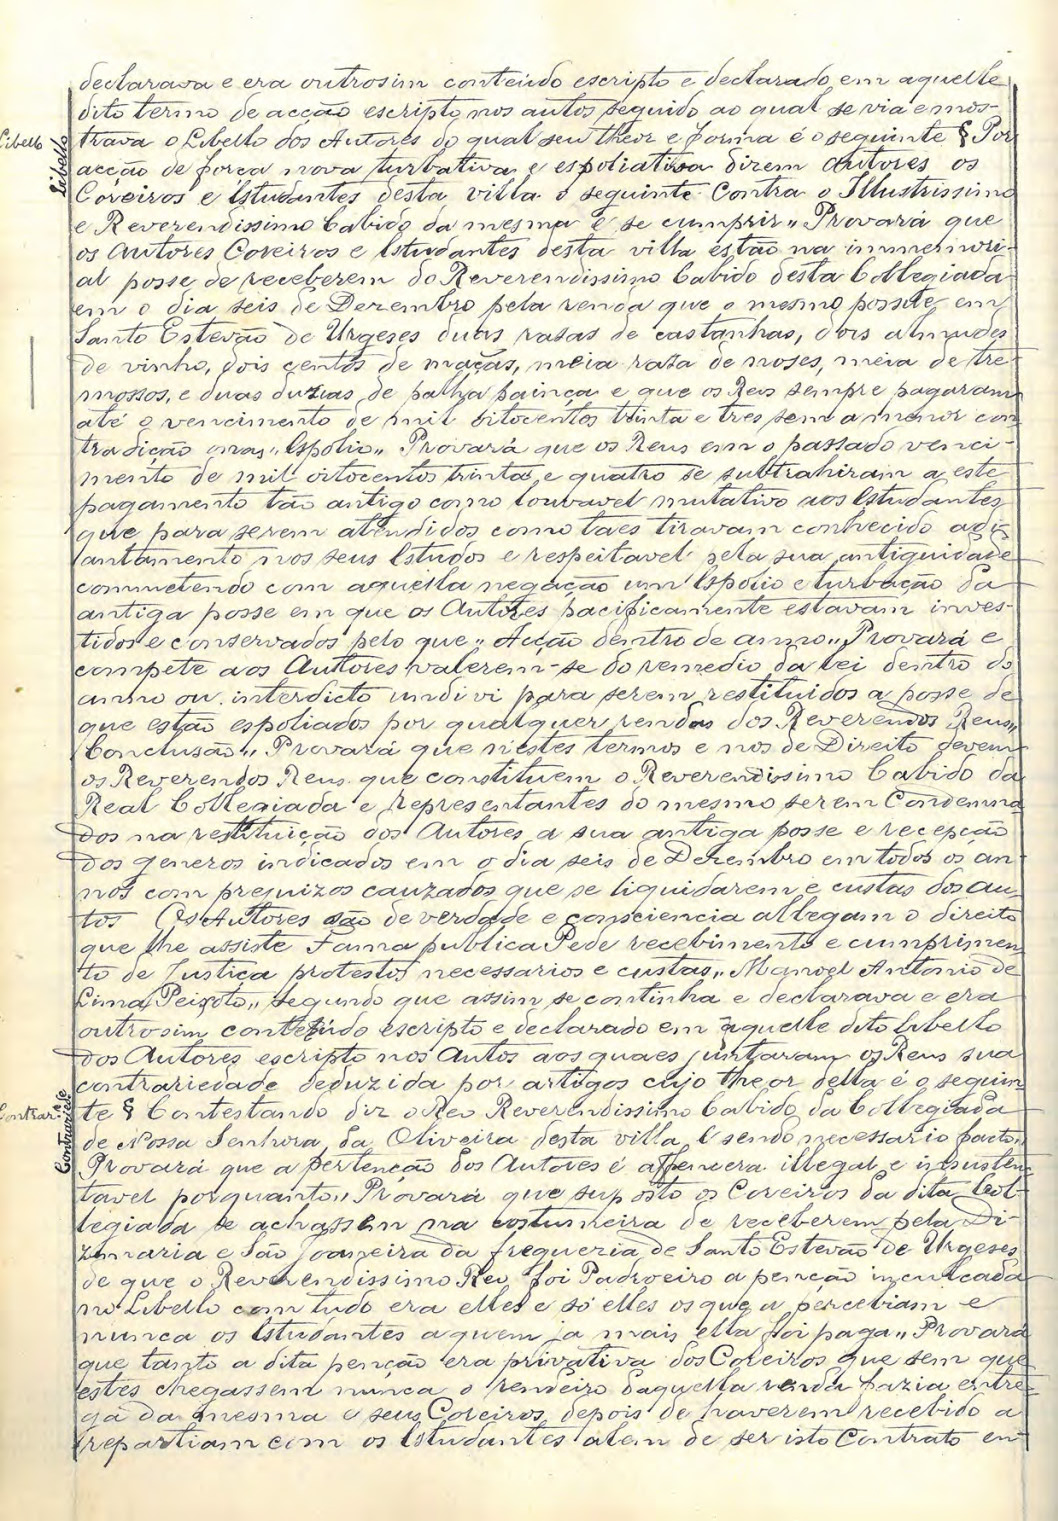 declarava e era outrosim conteúdo escripto e declarado em aquelle
dito termo de acção escripto nos autos seguido ao qual se via e mos-
Libello
Libello
trava o Libello dos Autores do qual seu theor e forma é o seguinte § Por
acção de força nova turbativa e espoliativa dizem Autores os
Coreiros e Estudantes desta villa o seguinte Contra o Illustrissimo
e Reverendissimo Cabido da mesma é se cumprir„ Provará que
os Autores Coreiros e Estudantes desta villa estão na immemori-
al posse de receberem do Reverendissimo Cabido desta Collegiada
em o dia seis de Dezembro pela renda que o mesmo possue em
Santo Estevão de Urgeses duas rasas de castanhas, dois almudes
de vinho, dois centos de maçãs, meia raza de noses, meia de tre-
mossos, e duas duzias de palha painça e que os Reus sempre pagaram
até o vencimento de mil oitocentos trinta e tres sem a menor con
tradição „Espolio„ Provará que os Reus em o passado venci-
mento de mil oitocentos trinta e quatro se subtrahiram a este
pagamento tão antigo como louvavel mutativo aos Estudantes
que para serem atendidos como taes tiravam conhecido adi-
antamento nos seus Estudos e respeitavel pela sua antiguidade
commetendo com aquella negação um Espolio e turbação da
antiga posse em que os Autores pacificamente estavam inves-
tidos e conservados pelo que„ Acção dentro de anno„ Provará e
compete aos Autores valerem-se do remedio da lei dentro do
anno ou interdicto undi vi para serem restituidos a posse de
que estão espoliados por qualquer rendas dos Reverendos Reus„
Conclusão„ Provará que nestes termos e nos de Direito devem
os Reverendos Reus que constituem o Reverendissimo Cabido da
Real Collegiada e representantes do mesmo serem Condemna
dos na restituição dos Autores a sua antiga posse e recepção
dos generos indicados em o dia seis de Dezembro em todos os an-
nos com prejuizos cauzados que se liquidarem e custas dos au-
tos Os Autores são de verdade e consciencia allegam o direito
que lhe assiste Fama publica Pede recebimento e cumprimen
to de Justiça protestos necessarios e custas„ Manoel Antonio de
Lima Peixoto„ segundo que assim se continha e declarava e era
outrosim conteúdo escripto e declarado em aquelle dito Libello
dos Autores escripto nos Autos aos quaes juntaram os Reus sua
contrariedade deduzida por artigos cujo theor della é o seguin
Contrar.e
Contrariede
te § Contestando diz o Reo Reverendissimo Cabido da Collegiada
de Nossa Senhora da Oliveira desta villa E sendo necessario facto„
Provará que a pertenção dos Autores é illegal e insusten
tavel porquanto„ Provará que suposto os Coreiros da dita Col-
legiada se achassem na costumeira de receberem pela Di-
zimaria e São Joaneira da freguezia de Santo Estevão de Urgeses
de que o Reverendissimo Reo foi Padroeiro a penção inculcada
no Libello com tudo era elles e só elles os que a percebiam e
nunca os Estudantes a quem ja mais ella foi paga„ Provará
que tanto a dita penção era privativa dos Coreiros que sem que
estes chegassem nunca o rendeiro daquella renda fazia entre
ga da mesma e seus Coreiros depois de haverem recebido a
repartiam com os Estudantes alem de ser isto Contrato en-